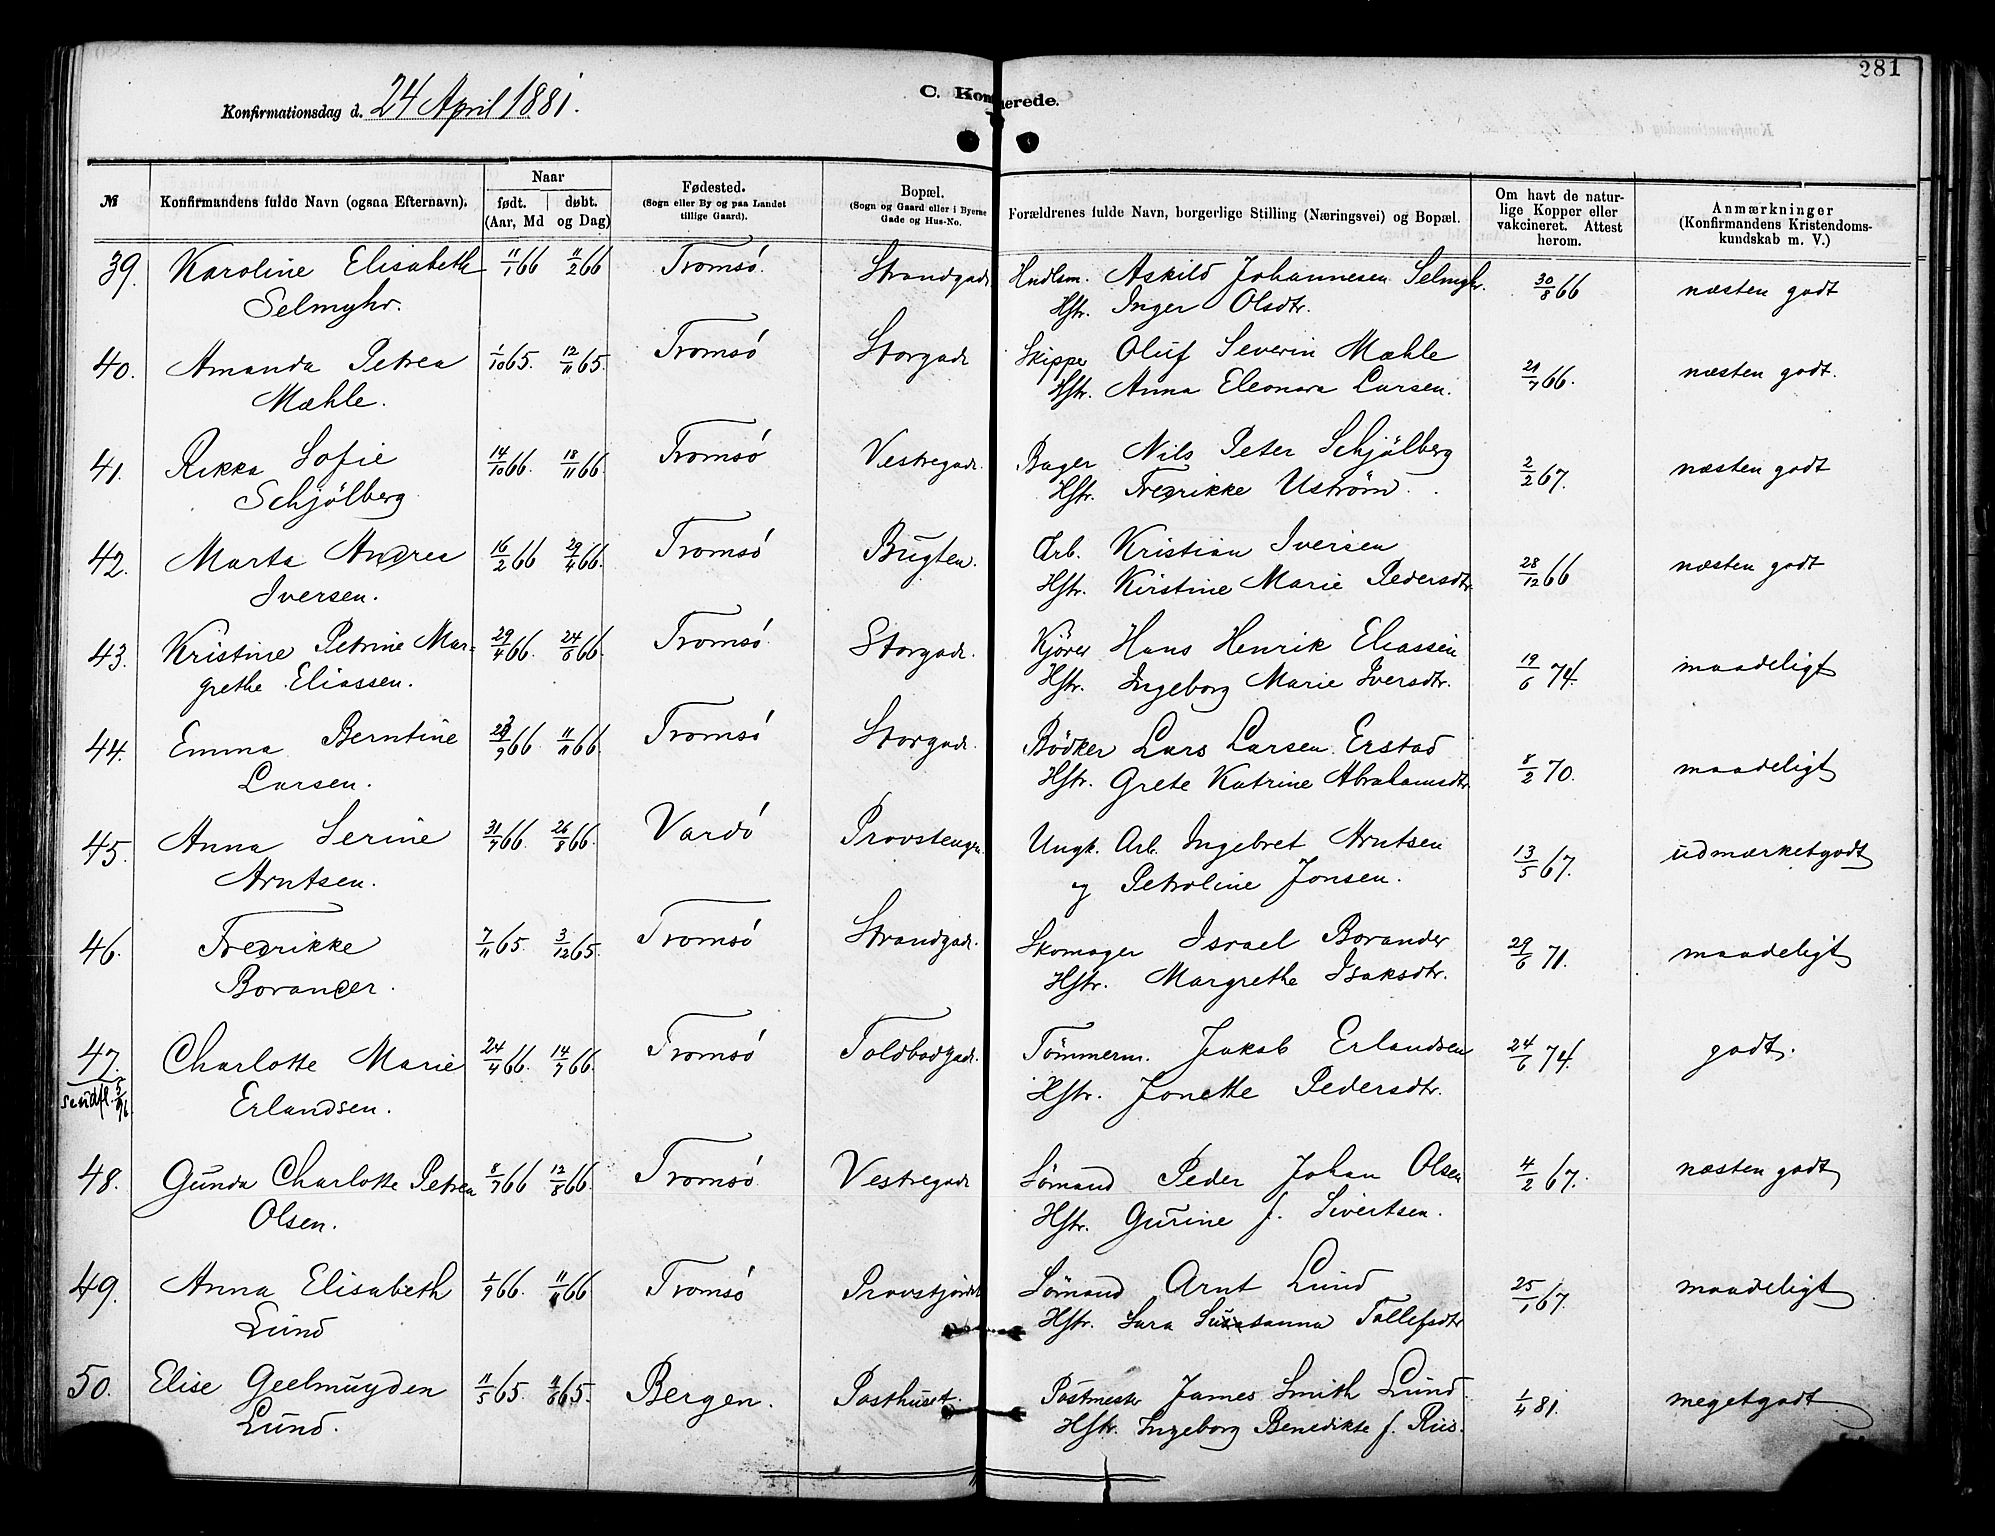 281
C. Konfirmerede.
Konfirmationsdag d. 24 April 1881.
№ Konfirmandens fulde Navn (ogsaa Efternavn). Naar født. døbt. (Aar, Md og Dag) Fødested. (Sogn eller By og paa Landet tillige Gaard). Bopæl. (Sogn og Gaard eller i Byerne Gade og Hus-No. Forældrenes fulde Navn, borgerlige Stilling (Næringsvei) og Bopæl. Om havt de naturlige Kopper eller vakcineret. Attest herom. Anmærkninger (Konfirmandens Kristendomskundskab m. V.)
39. Karoline Elisabeth 11/1 66 11/2 66 Tromsö. Strandgad. Hndlsm. Askild Johannesen Selmyhr. 30/8 66 næsten godt
Selmyhr. Hstr. Inger Olsdtr.
40. Amanda Petrea 1/10 65. 12/11 65. Tromsö Storgad. Skipper Oluf Severin Mæhle 21/7 66. næsten godt.
Mæhle. Hstr. Anna Eleonora Larsen.
41. Rikka Sofie 14/10 66. 18/11 66. Tromsö Vestregad. Bager Nils Peter Schjölberg 2/2 67. næsten godt
Schjölberg Hstr. Fredrikke Uström.
42. Marta Andrea 16/2 66 29/4 66. Tromsö Bugten. Arb. Kristian Iversen 28/12 66 næsten godt
Iversen. Hstr. Kirstine Marie Pedersdtr.
43. Kristine Petrine Mar- 29/4 66. 24/6 66. Tromsö. Storgad. Kjører Hans Henrik Eliassen 19/6 74. maadeligt
grethe Eliassen. Hstr. Ingeborg Marie Iversdtr.
44. Emma Berntine /9 66 11/11 66. Tromsö Storgad. Bödker Lars Larsen Erstad 8/2 70. maadeligt
Larsen. Hstr. Grete Katrine Abrahamsdtr.
45. Anna Serine 31/7 66. 26/8 66. Vardö Provstengen. Ungk. Arb. Ingebret Arntsen 13/5 67. udmærketgodt
Arntsen. og Petroline Jonsen.
46. Fredrikke 7/11 65. 3/12 65. Tromsö Strandgad. Skomager Israel Borander 29/6 71. maadeligt
Borander. Hstr. Margrethe Isaksdtr.
47. Charlotte Marie 24/4 66. 14/7 66. Tromsö Toldbodgad. Tömmerm. Jakob Erlandsen 24/6 74. godt.
Erlandsen. Hstr. Jonette Pedersdtr.
48. Gunda Charlotte Petrea 8/7 66 12/8 66. Tromsö Vestregad. Sömand Peder Johan Olsen 4/2 67. næsten godt
Olsen. Hstr. Gurine f. Sivertsen.
49. Anna Elisabeth 1/9 66. 11/11 66 Tromsö Provstjördet Sömand Arnt Lund 25/1 67. maadeligt
Lund Hstr. Sara Susanna Tollefsdtr
50. Elise Geelmuyden 11/5 65. 11/6 65. Bergen. Posthuset. Postmester James Smith Lund. 1/4 81. megetgodt
Lund. Hstr. Ingeborg Benedikte f. Riis.